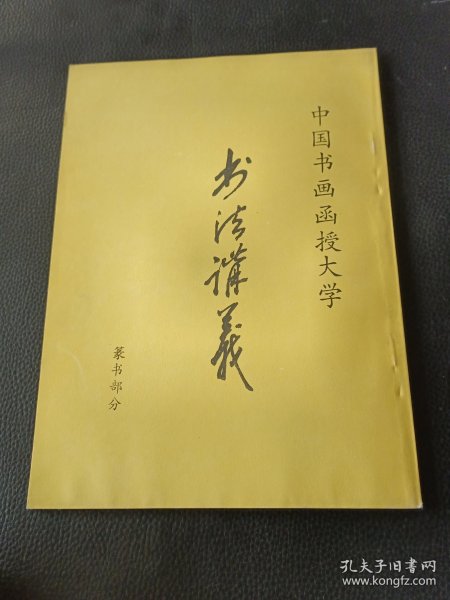 中国书画函授大学
书法講義
篆书部分
孔夫子旧书网
www.kongfz.com